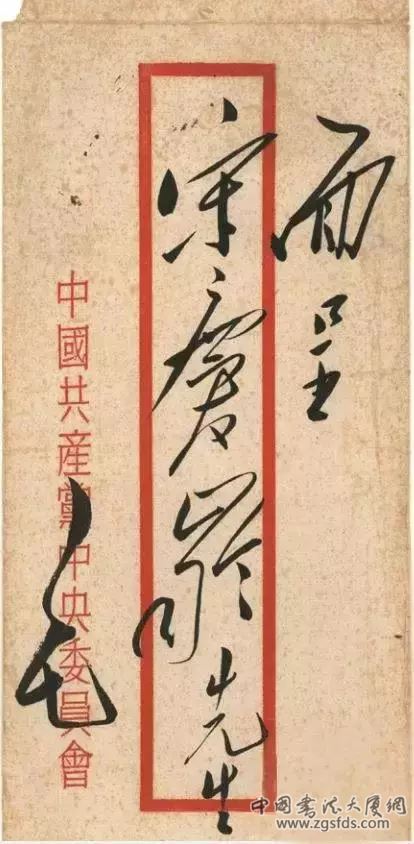 面呈
宋慶齡先生
中國共產黨中央委員會
毛
中国书法大厦網
www.zgsfds.com